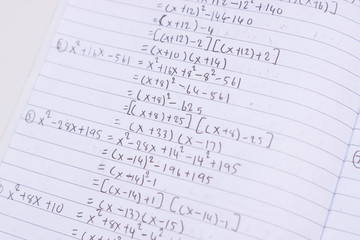 = (x+12)² - 144 - 140
= (x+12) - 4
= [(x+12) - 2] [(x+12) + 2]
= (x+10) (x+14)
x² + 16x - 561 = x² + 16x + 8² - 8² - 561
= (x+8)² - 64 - 561
= (x+8)² - 625
= [(x+8) + 25] [(x+8) - 25]
= (x+33) (x-17)
x² - 28x + 195 = x² - 28x + 14² - 14² + 195
= (x-14)² - 196 + 195
= (x-14)² - 1
= [(x-14) + 1] [(x-14) - 1]
= (x-13) (x-15)
x² + 8x + 10 = x² + 8x + 4² - 4²